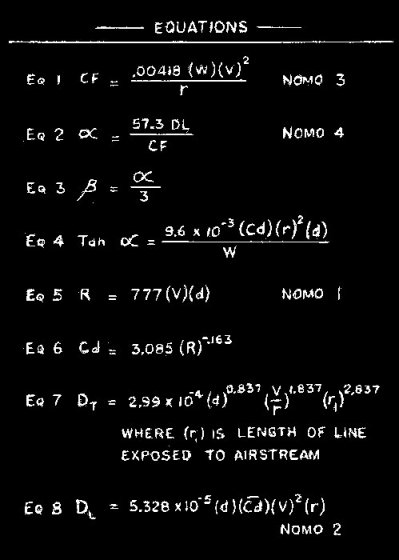 EQUATIONS
EQ 1 CF = .00418 (W)(V)² / r NOMO 3
EQ 2 ∝ = 57.3 DL / CF NOMO 4
EQ 3 β = ∝ / 3
EQ 4 Tan ∝ = 9.6 x 10⁻³ (Cd)(r)²(d) / W
EQ 5 R = 777(V)(d) NOMO 1
EQ 6 Cd = 3.085 (R)^-.163
EQ 7 D_T = 2.99 x 10⁻⁴ (d)^0.837 (V/r)^1.837 (r₁)^2.837
WHERE (r₁) IS LENGTH OF LINE
EXPOSED TO AIRSTREAM
EQ 8 D_L = 5.328 x10⁻⁵ (d)(C̅d̅)(V)²(r)
NOMO 2